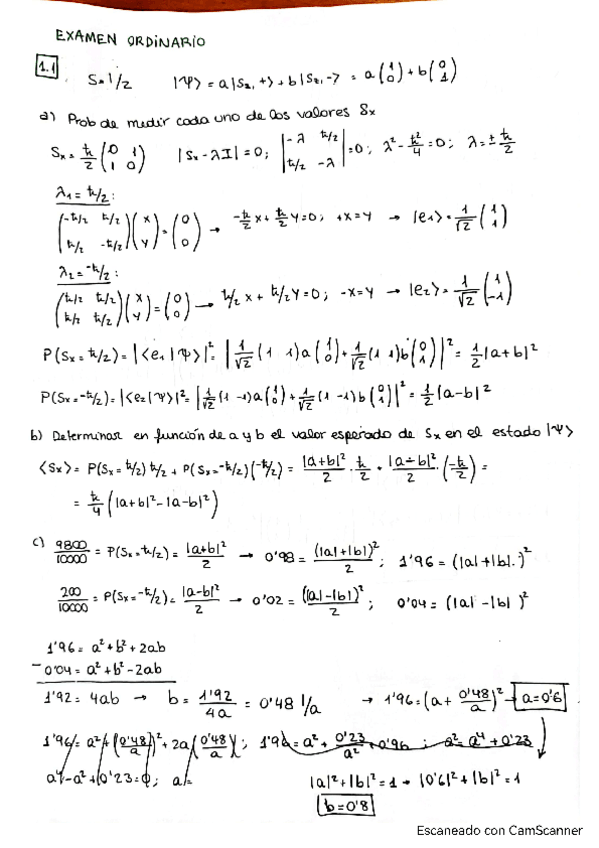 EXAMEN ORDINARIO
1.1
S=1/2 |Ψ> = a|Sz,+> + b|Sz,-> = a(1 0) + b(0 1)
a) Prob de medir cada uno de los valores Sx
Sx = ħ/2 (0 1 1 0) |Sx-λI| = 0; |-λ ħ/2 ħ/2 -λ| = 0; λ² - ħ²/4 = 0; λ = ± ħ/2
λ1 = ħ/2:
(-ħ/2 ħ/2 ħ/2 -ħ/2)(x y) = (0 0) → -ħ/2 x + ħ/2 y = 0; +x=y → |e1> = 1/√2 (1 1)
λ2 = -ħ/2:
(ħ/2 ħ/2 ħ/2 ħ/2)(x y) = (0 0) → ħ/2 x + ħ/2 y = 0; -x=y → |e2> = 1/√2 (1 -1)
P(Sx = ħ/2) = |<e1|Ψ>|² = |1/√2 (1 1)a(1 0) + 1/√2 (1 1)b(0 1)|² = 1/2 |a+b|²
P(Sx = -ħ/2) = |<e2|Ψ>|² = |1/√2 (1 -1)a(1 0) + 1/√2 (1 -1)b(0 1)|² = 1/2 |a-b|²
b) Determinar en función de a y b el valor esperado de Sx en el estado |Ψ>
<Sx> = P(Sx = ħ/2) ħ/2 + P(Sx = -ħ/2)(-ħ/2) = |a+b|²/2 · ħ/2 + |a-b|²/2 · (-ħ/2) =
= ħ/4 (|a+b|² - |a-b|²)
c) 9800/10000 = P(Sx = ħ/2) = |a+b|²/2 → 0'98 = (|a|+|b|)²/2; 1'96 = (|a|+|b|)²
200/10000 = P(Sx = -ħ/2) = |a-b|²/2 → 0'02 = (|a|-|b|)²/2; 0'04 = (|a|-|b|)²
1'96 = a² + b² + 2ab
- 0'04 = a² + b² - 2ab
1'92 = 4ab → b = 1'92/4a = 0'48 1/a → 1'96 = (a + 0'48/a)² → a=0'6
1'96 = a² + (0'48/a)² + 2a(0'48/a); 1'96 = a² + 0'23/a² + 0'96; a² = a⁴ + 0'23
a⁴ - a² + 0'23 = 0; a= |a|² + |b|² = 1 → |0'6|² + |b|² = 1
b=0'8
Escaneado con CamScanner